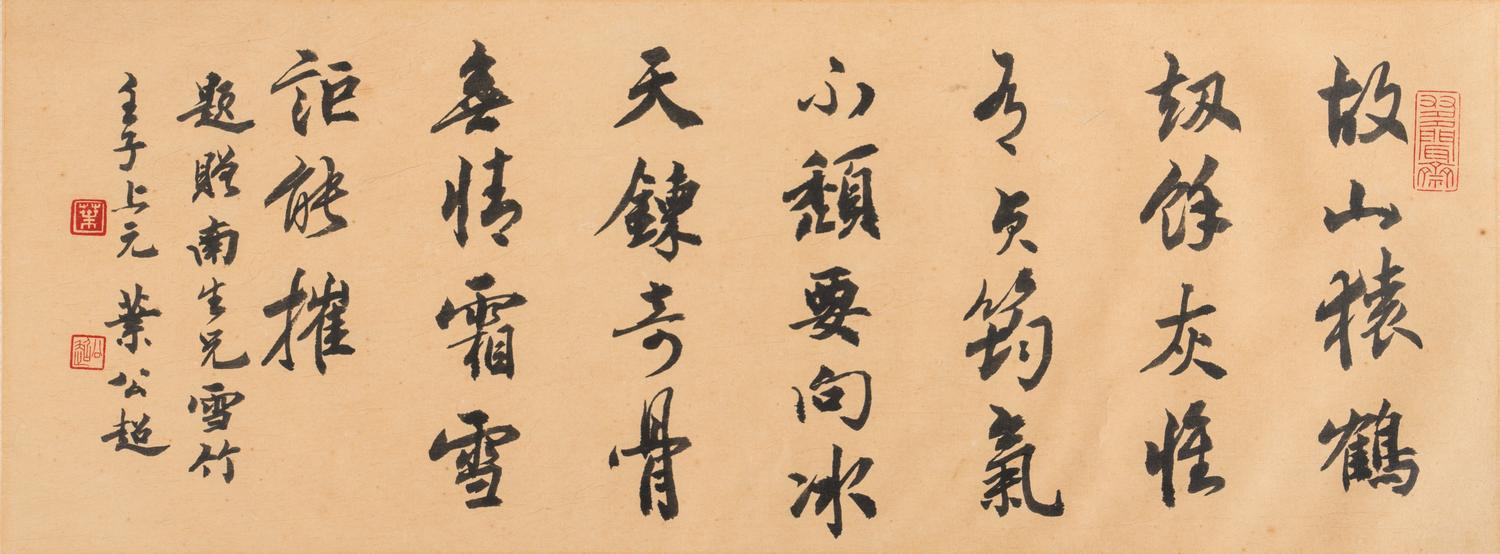 故山猿鶴
劫餘灰惟
有貞筠氣
不頹要向冰
天鍊奇骨
無情霜雪
詎能摧
題贈南生兄雪竹
壬子上元 葉公超
葉
公超